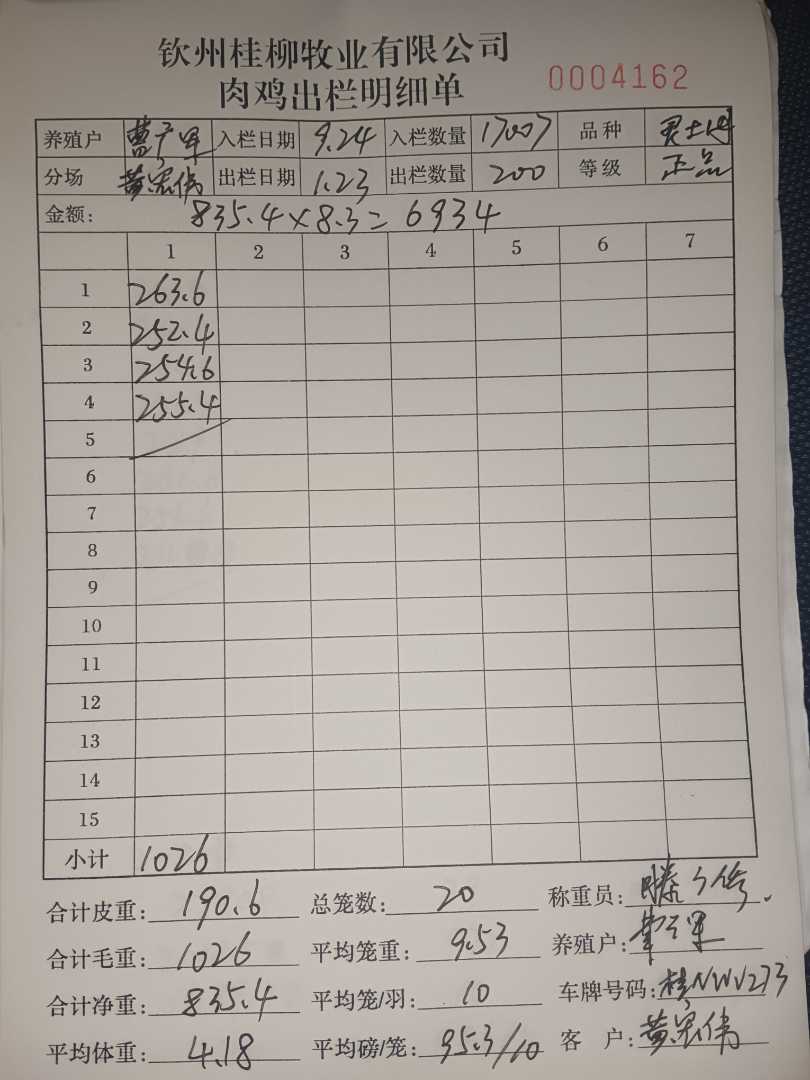 钦州桂柳牧业有限公司
肉鸡出栏明细单 0004162
养殖户 入栏日期 9.24 入栏数量 17007 品种
分场 黄宗伟 出栏日期 1.23 出栏数量 200 等级 正品
金额: 835.4×8.3= 6934
1 2 3 4 5 6 7
1 263.6
2 252.4
3 254.6
4 255.4
5
6
7
8
9
10
11
12
13
14
15
小计 1026
合计皮重: 190.6 总笼数: 20 称重员:
合计毛重: 1026 平均笼重: 9.53 养殖户:
合计净重: 835.4 平均笼/羽: 10 车牌号码: 桂NWV273
平均体重: 4.18 平均磅/笼: 95.3/10 客 户: 黄宗伟